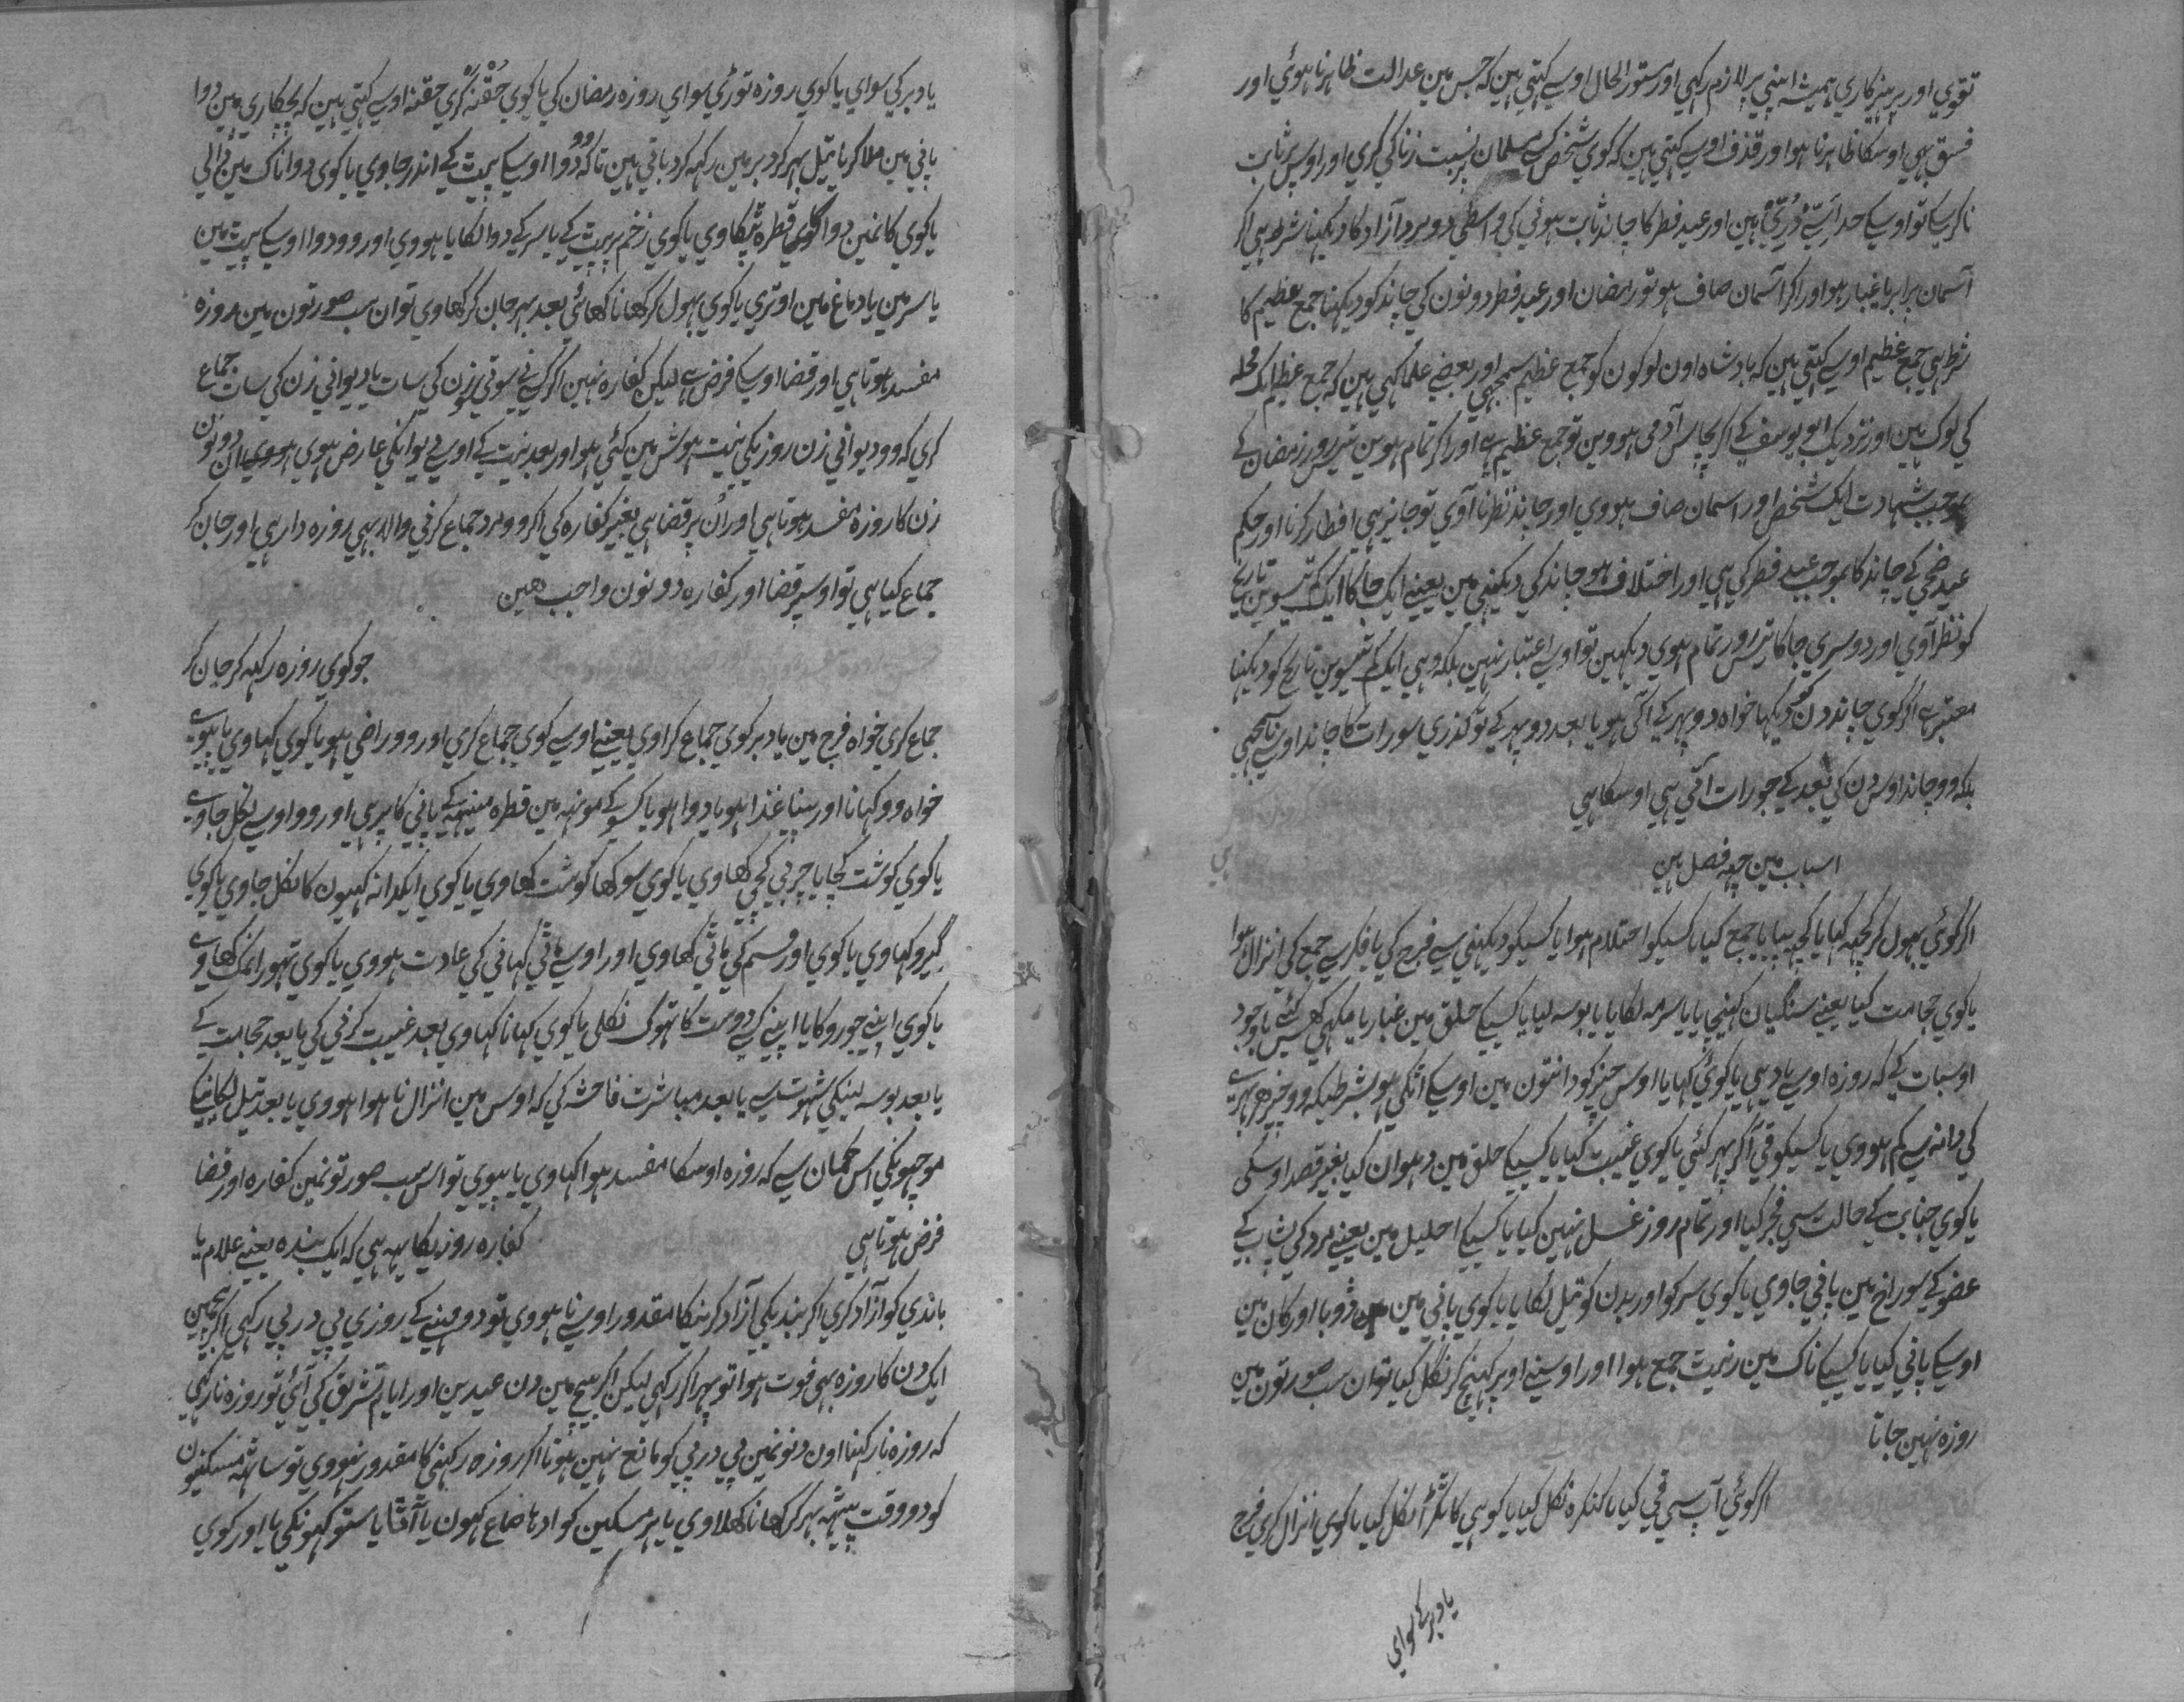 تقوي اور پرہیزکاری ہمیشہ اپني پر لازم رکہي اور مستور الحال اوسے کہتي ہین کہ جس مین عدالت ظاہر نا ہوئي اور
فسق بہي اوسکا ظاہر نا ہو اور قذف اوسے کہتي ہین کہ کوي شخص کسے مسلمان پر نسبت زنا کي کري اور اوسپر ثابت
نا کرسکے تو اوسکے حد اسّے دُرّي ہین اور عید فطر کا چاند ثابت ہونی کي واسطي دو مرد آزاد کا دیکہنا شرط ہي اکر
آسمان پر ابر یا غبار ہو اور اکر آسمان صاف ہو تو رمضان اور عید فطر دونون کي چاند کو دیکہنا جمع عظیم کا
شرط ہي جمع عظیم اوسے کہتي ہین کہ بادشاہ اون لوکون کو جمع عظیم سمجہي اور بعضے علما کہي ہین کہ جمع عظیم ایک محلہ
کي لوک ہین اور نزدیک ابو یوسف کے اکر پچاس آدمی ہووین تو جمع عظیم ہے اور اکر تمام ہوین تیس روز رمضان کے
بموجب شہادت ایک شخص اور اسمان صاف ہووي اور چاند نظر نا آوي تو جائز ہي افطار کرنا اور حکم
عید ضحي کے چاند کا بموجب عید فطر کي ہي اور اختلاف ہو چاند کي دیکہنی مین یعنے ایک جاکا ایک کم تیسوین تاریخ
کو نظر آوي اور دوسري جاکا تیس روز تمام ہوي دیکہین تو اوسے اعتبار نہین بلکہ وہي ایک کم تیسوین تاریخ کو دیکہنا
معتبر ہے اکر کوي چاند دن کو دیکہا خواہ دوپہر کے آکي ہو یا بعد دوپہر کے تو گذري سو رات کا چاند اوسے نا سمجہي
بلکہ وو چاند اوس دن کي بعد کے جو رات آتي ہي اوسکا ہي
اسباب مین چہہ فصل ہین
اکر کوئي بہول کر کچہہ کہایا یا کچہہ پیا یا جمع کیا یا کسیکو احتلام ہوا یا کسیکو دیکہنی سے فرج کي یا فکر سے جمع کي انزال ہوا
یا کوي حجامت کیا یعنے سنگیان کہنیچایا یا سرمہ لکایا یا بوسہ لیا یا کسیکے حلق مین غبار یا مکہي گہس کئے باوجود
اوسبات کے کہ روزہ اوسے یاد ہي یا کوئي کہایا اوس چیز کو دانتون مین اوسکے اٹکي ہو بشرطیکہ وو چیز ہر بہري
کي دانہ سے کم ہووي یا کسیکو قی آکر پہر کئي یا کوي غیبت کیا یا کسیکے حلق مین دہوان کیا بغیر قصد اوسکی
یا کوي جنابت کے حالت سي فجر کیا اور تمام روز غسل نہین کیا یا کسیکے احلیل مین یعنے مرد کي پیشاب کے
عضو کے سوراخ مین پاني جاوي یا کوي سر کو اور بدن کو تیل لکایا یا کوي پاني مین ڈوبا اور کان مین
اوسکے پاني کیا یا کسیکے ناک مین رنیٹ جمع ہوا اور اوسنے اوپر کہنیچ کر نگل کیا تو ان سب صورتون مین
روزہ نہین جاتا
اکر کوئي آپ سي قي کیا یا کنکرہ نکل کیا یا لوہي کا ٹکڑا نکل کیا یا کوي انزال کري فرج
یا دبر کے سوای
یا دبر کي سواي یا کوي روزہ توڑي سواي روزہ رمضان کي یا کوي حُقْنَہْ کري حقنہ اوسے کہتي ہین کہ پچکاري مین دوا
پاني مین ملاکر یا تیل بہر کر دبر مین رکہہ کر دباتي ہین تاکہ دوا اوسکے پیٹ کے اندر جاوي یا کوي دوا ناک مین ڈالي
یا کوي کانمین دوا کا قطرہ ٹپکاوي یا کوي زخم پر پیٹ کے یا سر کے دوا لکایا ہووي اور وو دوا اوسکے پیٹ مین
یا سر مین یا دماغ مین اوتري یا کوي بہول کر کہانا کہائي بعد پہر جان کر کہاوي تو ان سب صورتون مین روزہ
مفسد ہوتا ہي اور قضا اوسکے فرض ہے لیکن کفارہ نہین اکر کسنے سوتي زن کي سات یا دیواني زن کي سات جماع
کري کہ وو دیواني زن روزیکي نیت ہوش مین کئي ہو اور بعد نیت کے اوسے دیوانکي عارض ہوي ہووي ان دونون
زن کا روزہ مفسد ہوتا ہي اور اُن پر قضا ہي بغیر کفارہ کي اکر وو مرد جماع کرني والا بہي روزہ دار ہي اور جان کر
جماع کیا ہي تو اوسپر قضا اور کفارہ دونون واجب ہین
جو کوي روزہ رکہہ کر جان کر
جماع کري خواہ فرج مین یا دبر کوي جماع کراوي یعنے اوسے کوي جماع کري اور وو راضي ہو یا کوي کہاوي یا پیوے
خواہ وو کہانا اور پینا غذا ہو یا دوا ہو یا کسو کے مونہہ مین قطرہ مینہہ کے پاني کا پري اور وو اوسے نکل جاوے
یا کوي کوشت کچا یا چربي کچي کہاوي یا کوي سوکہا کوشت کہاوي یا کوي ایکدانہ کہیون کا نکل جاوي یا کوي
گیرو کہاوي یا کوي اور قسم کي ماٹي کہاوي اور اوسے ماٹي کہاني کي عادت ہووي یا کوي تہورا نمک کہاوے
یا کوي اپنے جورو کا یا اپنے کسے دوست کا تہوک نکلی یا کوي کہانا کہاوي بعد غیبت کرني کي یا بعد حجامت کے
یا بعد بوسہ لینکي شہوت سے یا بعد مباشرت فاحشہ کي کہ اوس مین انزال نا ہوا ہووي یا بعد تیل لکانیکے
موچہونکي اس گمان سے کہ روزہ اوسکا مفسد ہوا کہاوي یا پیوي تو اس سب صورتونمین کفارہ اور قضا
فرض ہوتا ہي    کفارہ روزیکا یہہ ہي کہ ایک بندہ یعنے غلام یا
باندي کو آزاد کري اکر بندیکي آزاد کرنیکا مقدور اوسے نا ہووي تو دو مہینے کے روزي پي در پي رکہي اکر بیچمین
ایکدن کا روزہ بہي فوت ہوا تو پہر اکر رکہي لیکن اکر بیچ مین دن عیدین اور ایام تشریق کي آئي تو روزہ نا رکہي
کہ روزہ نا رکہنا اون دنونمین پي درپي کو مانع نہین ہوتا اکر روزہ رکہنی کا مقدور نہووي تو ساٹہہ مسکینون
کو دو وقت پیٹہہ بہر کر کہانا کہلاوي یا ہر مسکین کو ادہا صاع کہیون یا آٹا یا ستو کہیونکي یا اور کوي